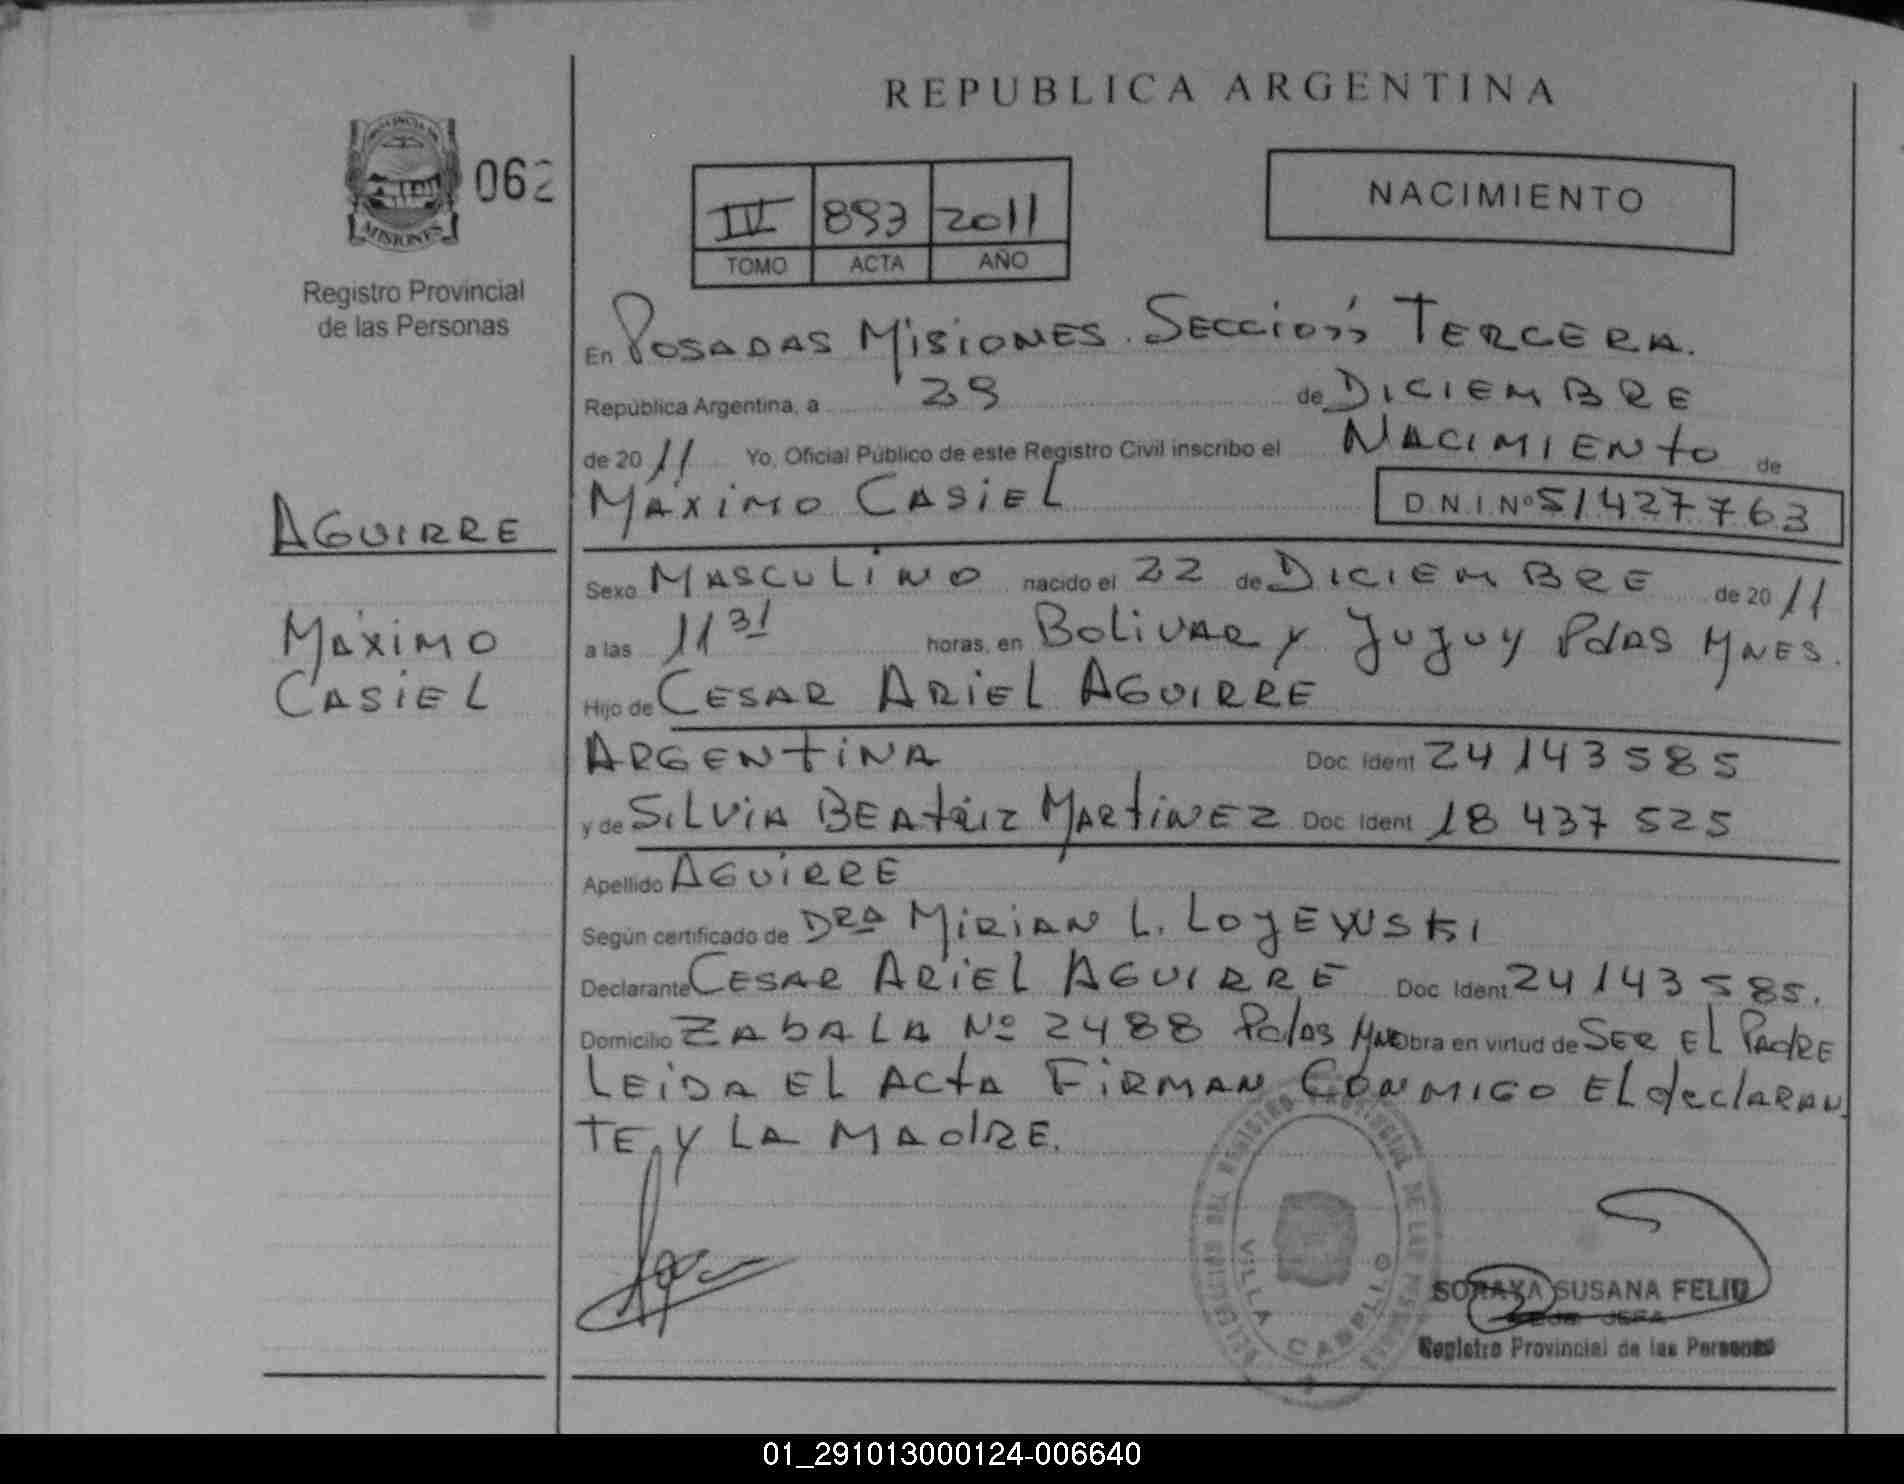 REPUBLICA ARGENTINA
PROVINCIA DE
MISIONES
062
Registro Provincial
de las Personas
IV 893 2011
TOMO ACTA AÑO
NACIMIENTO
En POSADAS MISIONES. SECCIÓN TERCERA.
República Argentina, a 29 de DICIEMBRE
de 20 11 Yo, Oficial Público de este Registro Civil inscribo el NACIMIENTO de
MÁXIMO CASIEL D.N.I. Nº 51427763
AGUIRRE
MÁXIMO
CASIEL
Sexo MASCULINO nacido el 22 de DICIEMBRE de 20 11
a las 11 31 horas, en BOLIVAR y JUJUY PdAS MNES.
Hijo de CESAR ARIEL AGUIRRE
ARGENTINA Doc. Ident 24143585
y de SILVIA BEATRIZ MARTINEZ Doc. Ident 18 437 525
Apellido AGUIRRE
Según certificado de DRA MIRIAN L. LOJEWSKI
Declarante CESAR ARIEL AGUIRRE Doc. Ident. 24143585.
Domicilio ZABALA Nº 2488 PdAS MNE Obra en virtud de SER EL PADRE
LEIDA EL ACTA FIRMAN CONMIGO EL dEClARAN
TE, Y LA MADRE.
VILLA CABELLO
SORAYA SUSANA FELIU
JEFA
Registro Provincial de las Personas
01_291013000124-006640